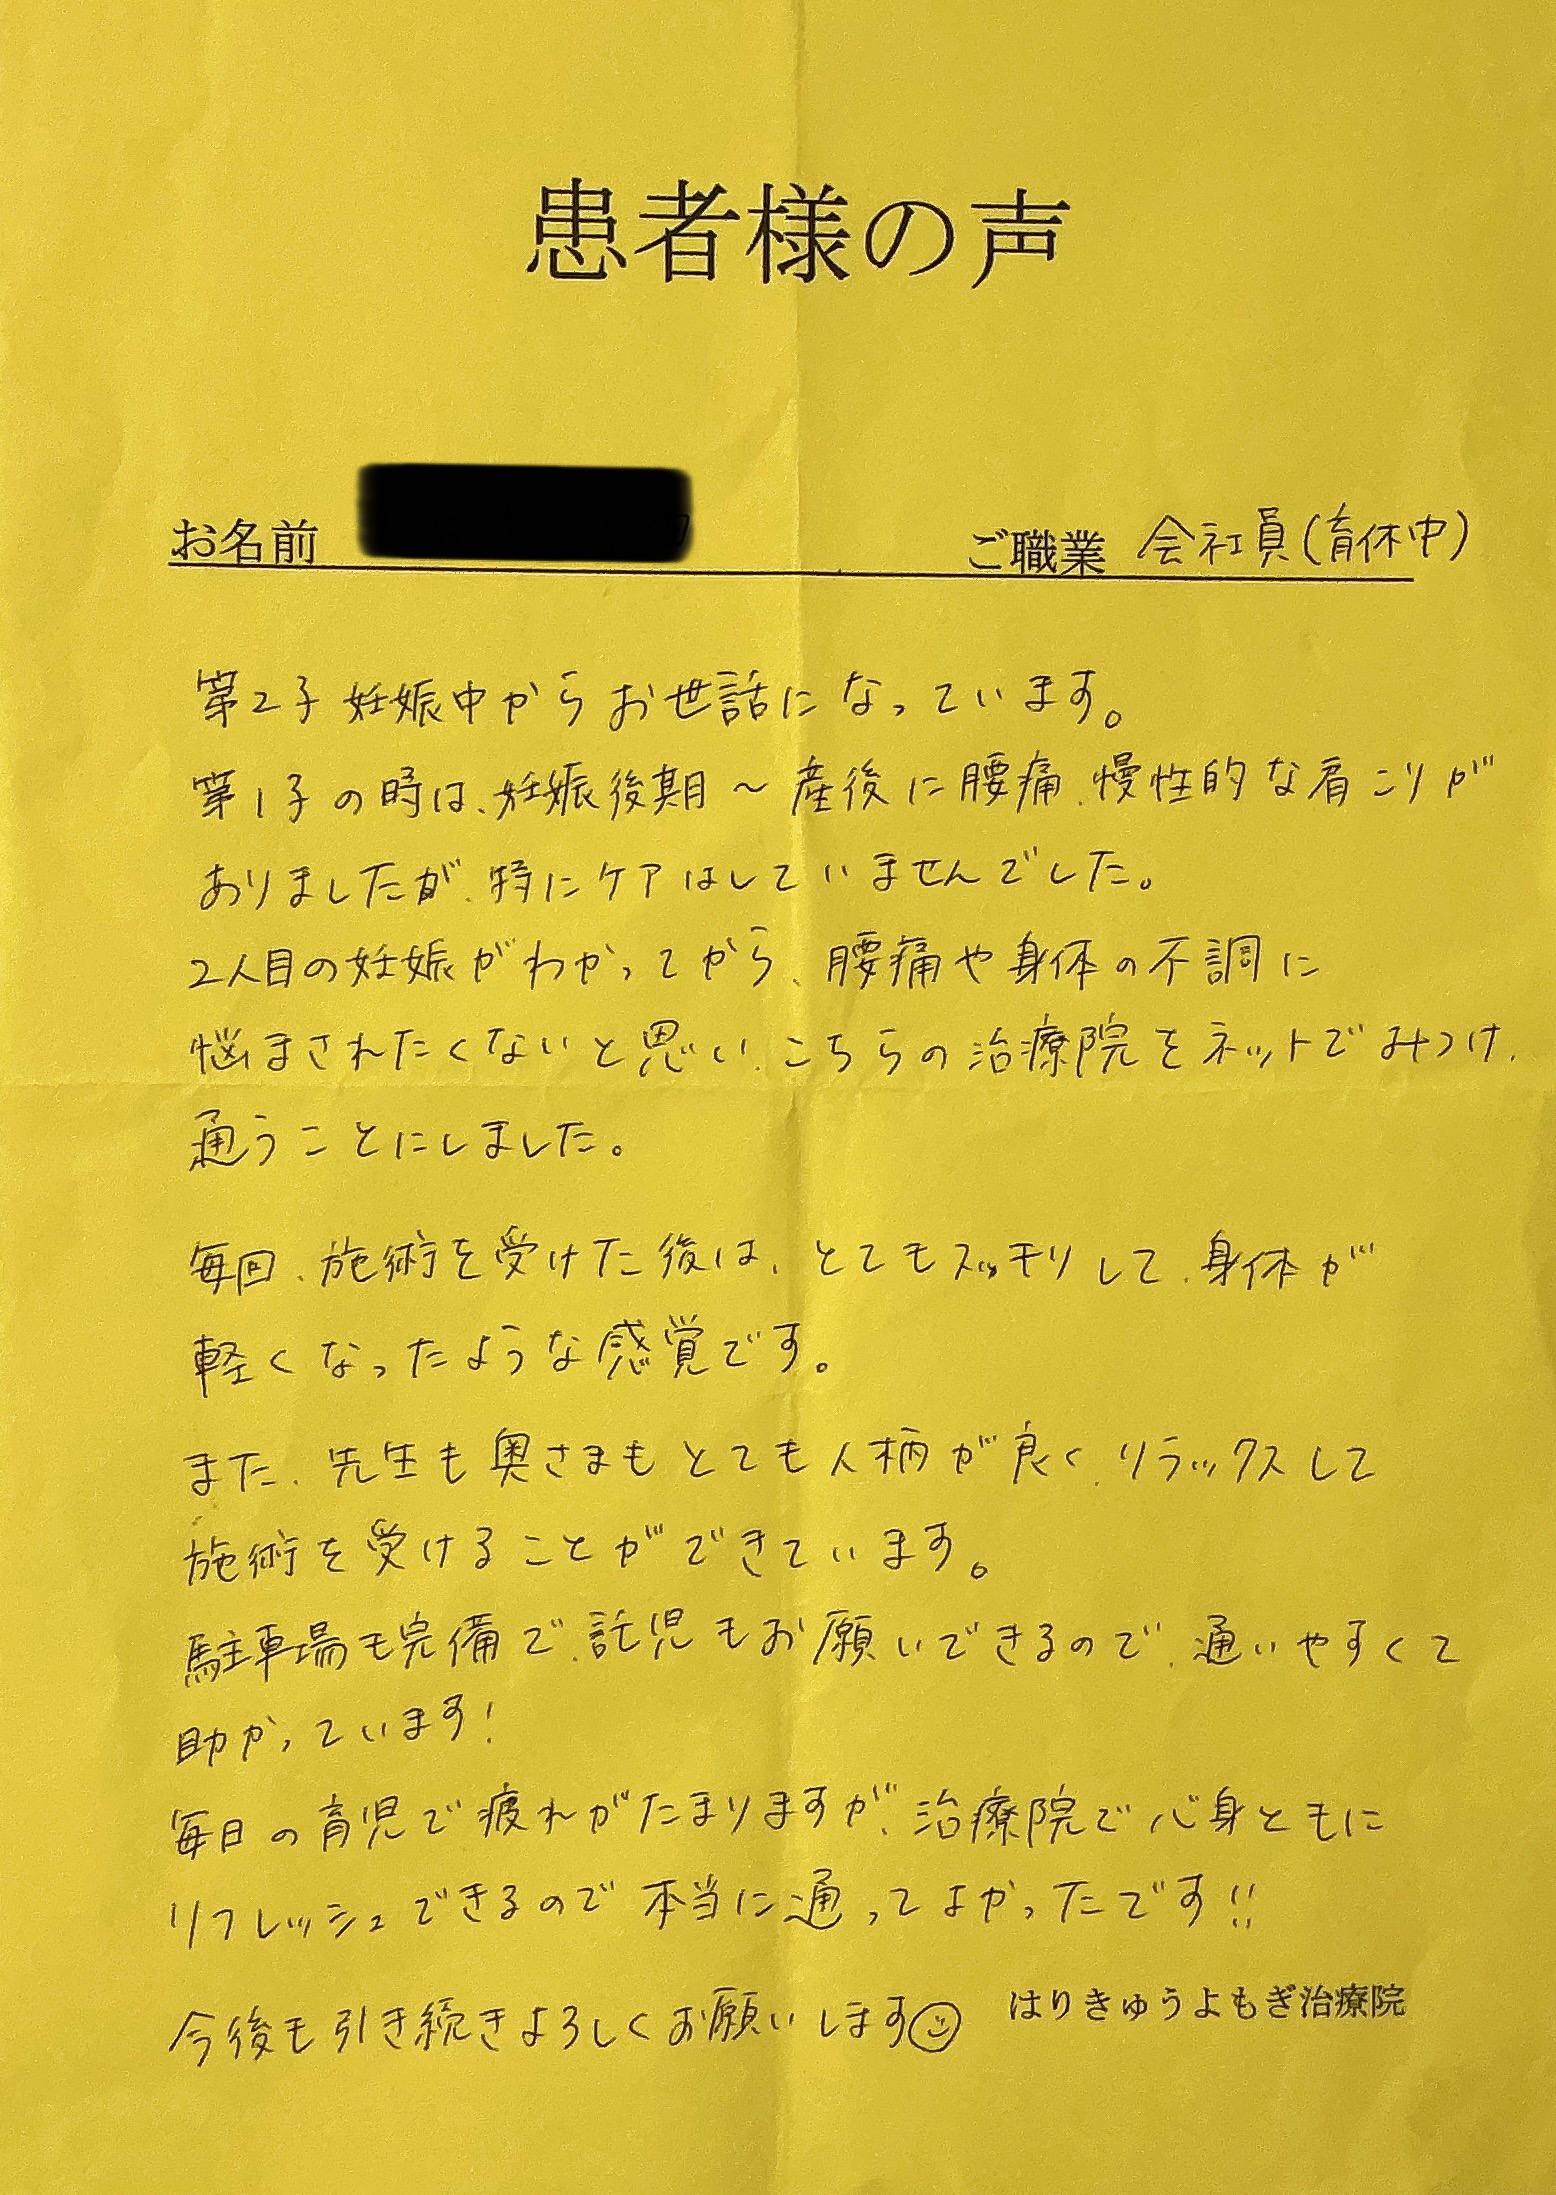 患者様の声
お名前 ご職業 会社員(育休中)
第2子妊娠中からお世話になっています。
第1子の時は、妊娠後期～産後に腰痛、慢性的な肩こりが
ありましたが、特にケアはしていませんでした。
2人目の妊娠がわかってから、腰痛や身体の不調に
悩まされたくないと思い、こちらの治療院をネットでみつけ、
通うことにしました。
毎回、施術を受けた後は、とてもスッキリして、身体が
軽くなったような感覚です。
また、先生も奥さまもとても人柄が良く、リラックスして
施術を受けることができています。
駐車場も完備で、託児もお願いできるので、通いやすくて
助かっています!
毎日の育児で疲れがたまりますが、治療院で心身ともに
リフレッシュできるので本当に通ってよかったです!!
今後も引き続きよろしくお願いします☺
はりきゅうよもぎ治療院